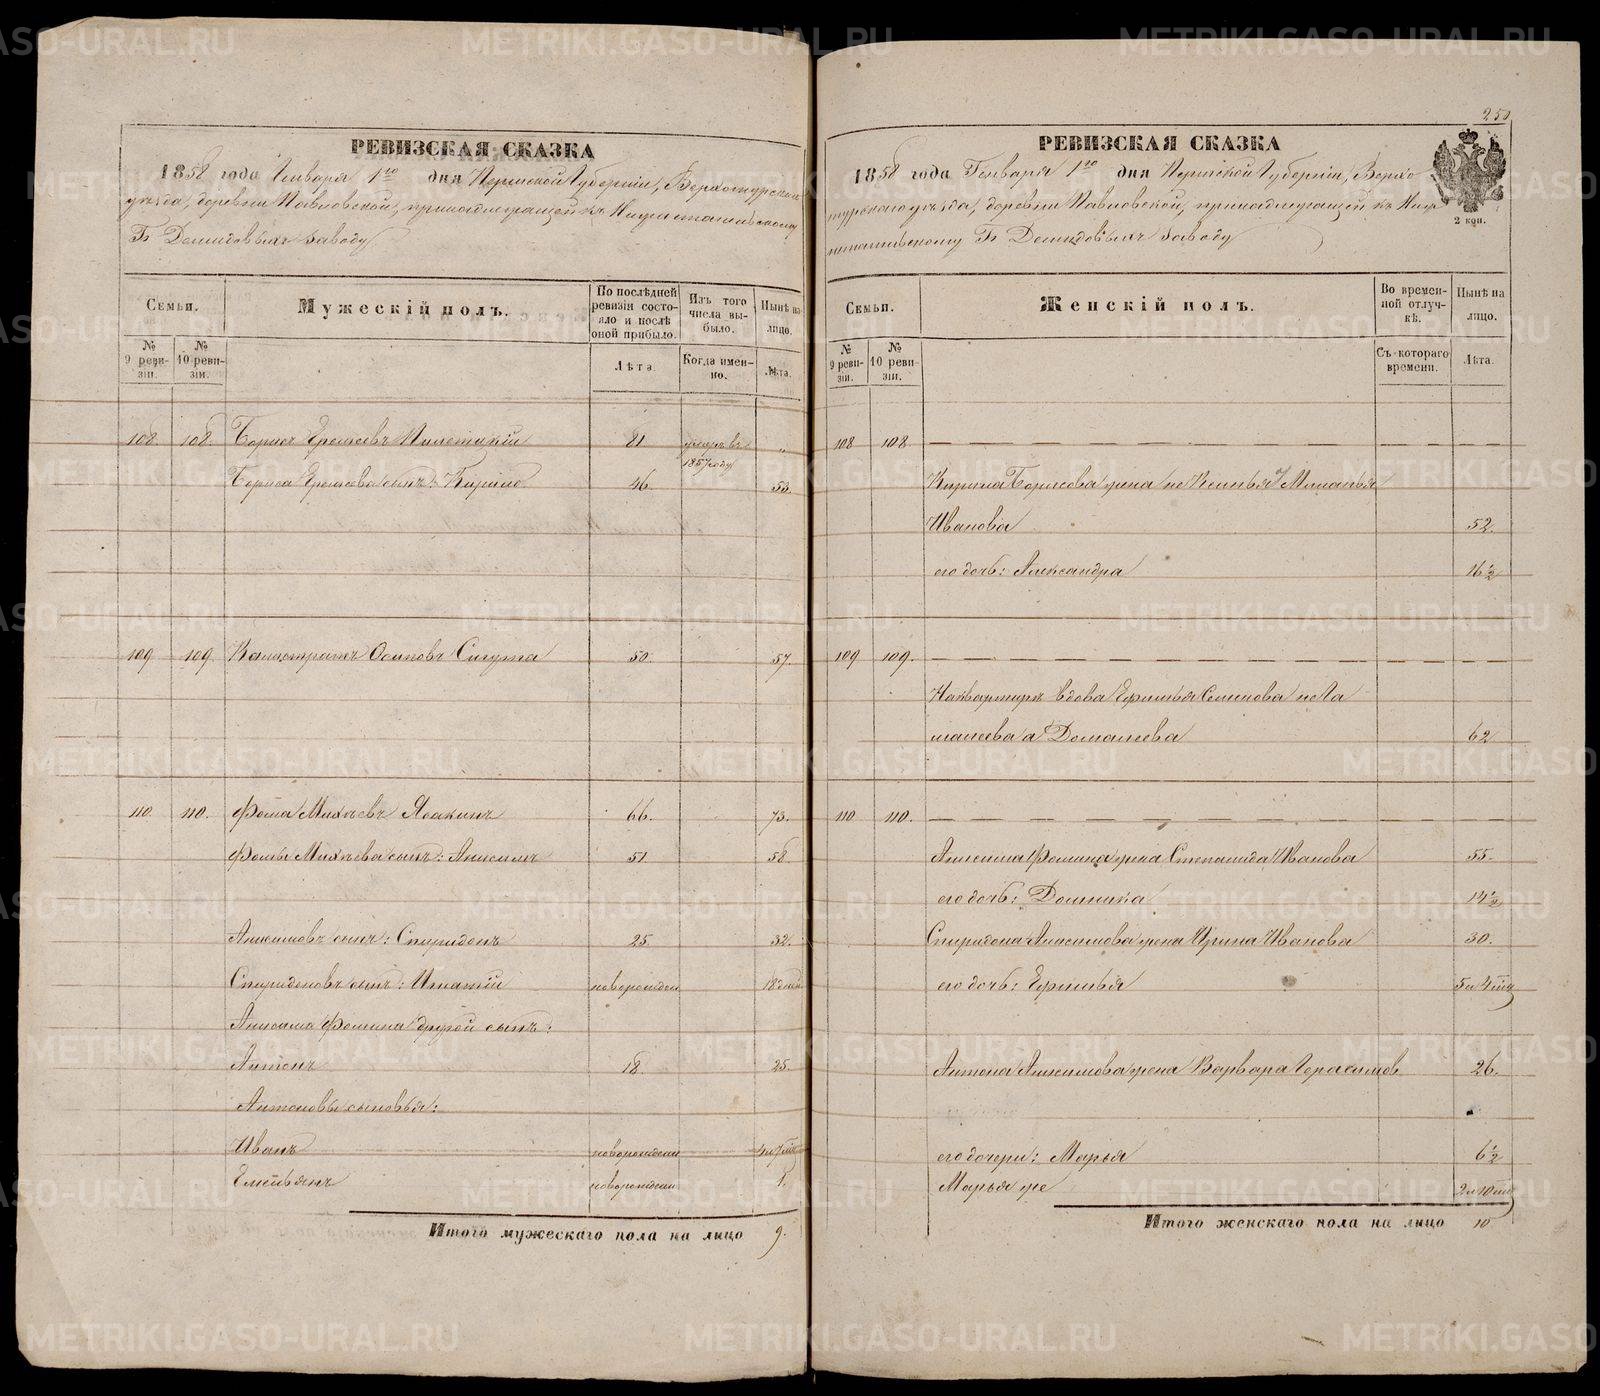 250
РЕВИЗСКАЯ СКАЗКА
1858 года Генваря 1го дня Пермской Губернии, Верхотурскаго
уезда, деревни Павловской, принадлежащей къ Нижнетагильскому
Гг Демидовыхъ заводу
Семьи.
Мужескій полъ.
По послѣдней ревизіи состояло и послѣ оной прибыло.
Изъ того числа выбыло.
Нынѣ на лицо.
№ 9 ревизіи.
№ 10 ревизіи.
Лѣта.
Когда именно.
Лѣта.
108. 108. Борисъ Еремеевъ 81 умеръ въ 1857 году „
Бориса Еремеева сынъ: Кирило 46. 53.
109. 109. Калистратъ Осиповъ 50. 57.
110. 110. Фома Михѣевъ 66. 73.
Фомы Михѣева сынъ: Анисимъ 51. 58
Анисимовъ сынъ: Спиридонъ 25. 32.
Спиридоновъ сынъ: Игнатій новорожден 18 дней
Анисима Фомина другой сынъ:
Антонъ 18. 25.
Антоновы сыновья:
Иванъ новорожден
Емельянъ новорожден 1.
Итого мужескаго пола на лицо 9.
РЕВИЗСКАЯ СКАЗКА
1858 года Генваря 1го дня Пермской Губерніи, Верхо
турскаго уѣзда, деревни Павловской, принадлежащей къ Ниж
нетагильскому Гг Демидовыхъ заводу
2 коп.
Семьи.
Женскій полъ.
Во временной отлучкѣ.
Нынѣ на лицо.
№ 9 ревизіи.
№ 10 ревизіи.
Съ котораго времени.
Лѣта.
108 108
Кирила Борисова жена не Меланья
Иванова 52.
его дочь: Александра 16 1/2
109 109.
На квартирѣ вдова Ефимья Семенова не
а 62
110 110.
Анисима Фомина жена Степанида Иванова 55.
его дочь: Домника 14 1/2
Спиридона Анисимова жена Ирина Иванова 30.
его дочь: Ефимья 5 и 4 мц
Антона Анисимова жена Варвара Герасимов 26.
его дочери: Марья 6 1/2
Марья же 2 и 10 мц
Итого женскаго пола на лицо 10
METRIKI.GASO-URAL.RU